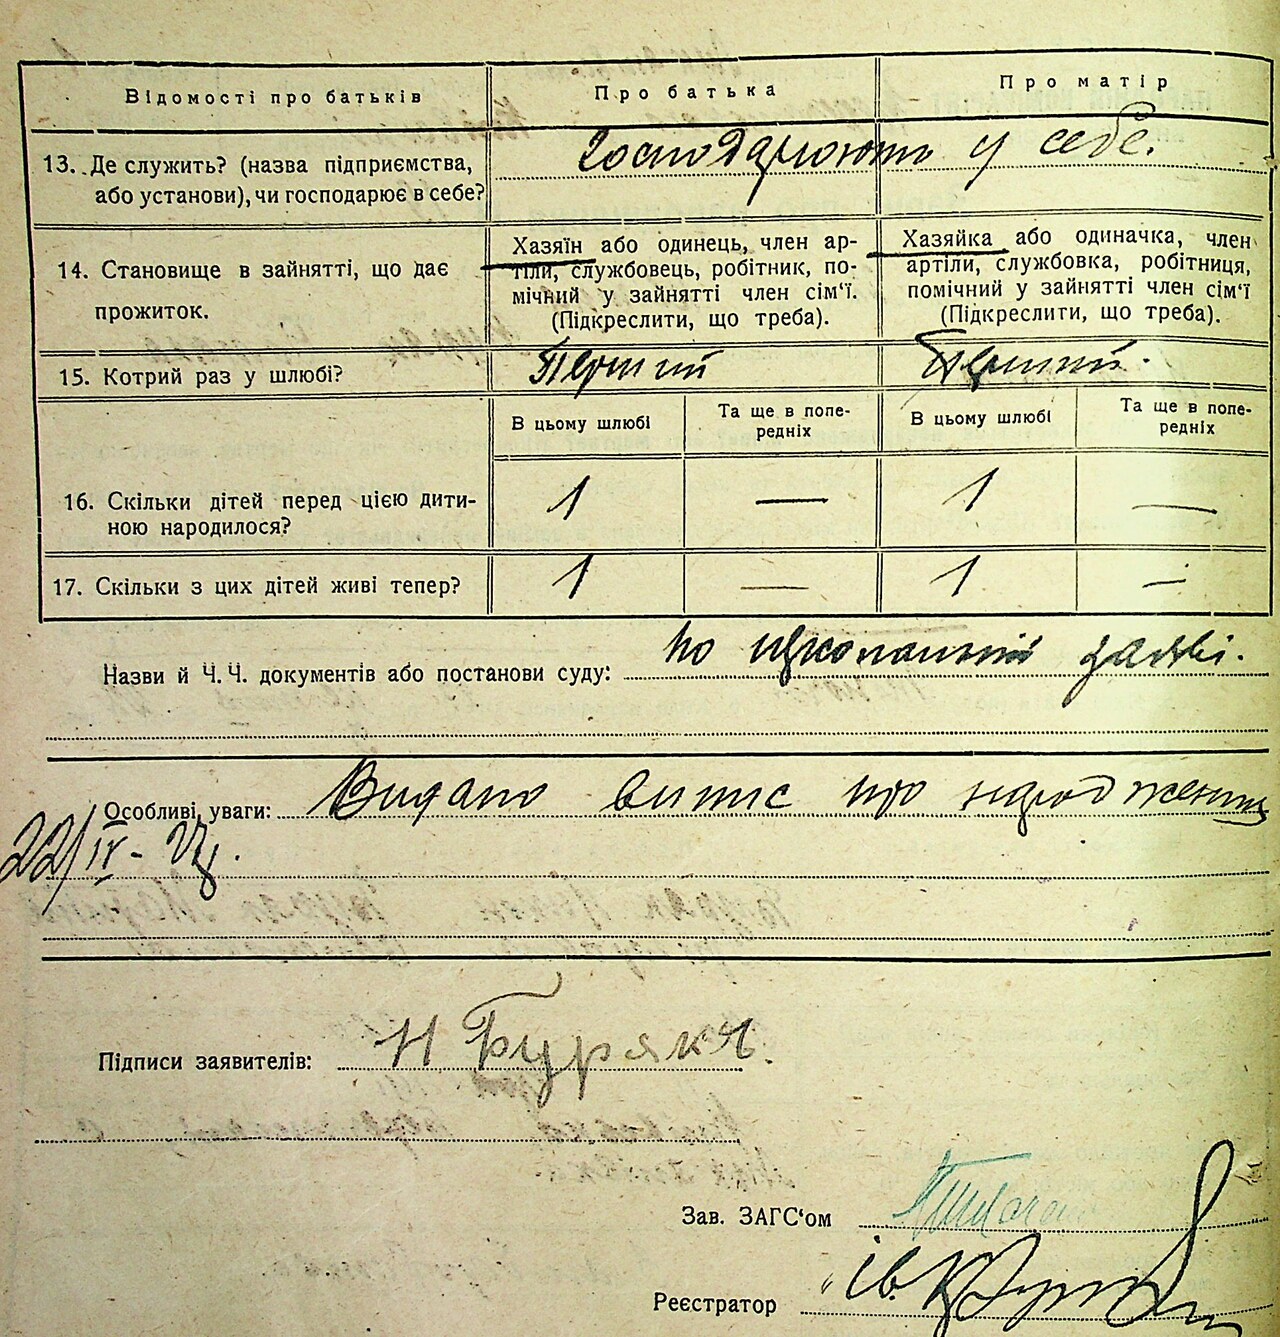 Відомості про батьків
Про батька
Про матір
13. Де служить? (назва підприємства,
або установи), чи господарює в себе?
Господарюють у себе.
14. Становище в зайнятті, що дає
прожиток.
Хазяїн або одинець, член ар-
тіли, службовець, робітник, по-
мічний у зайнятті член сім'ї.
(Підкреслити, що треба).
Хазяйка або одиначка, член
артіли, службовка, робітниця,
помічний у зайнятті член сім'ї
(Підкреслити, що треба).
15. Котрий раз у шлюбі?
Перший
Перший.
В цьому шлюбі
Та ще в попе-
редніх
В цьому шлюбі
Та ще в попе-
редніх
16. Скільки дітей перед цією дити-
ною народилося?
1 — 1 —
17. Скільки з цих дітей живі тепер?
1 — 1 —
Назви й Ч. Ч. документів або постанови суду: по заяві.
Особливі уваги: Видано витис про народження
22/IV-
Підписи заявителів: Н Буряк
Зав. ЗАГС'ом
Реєстратор Ів.